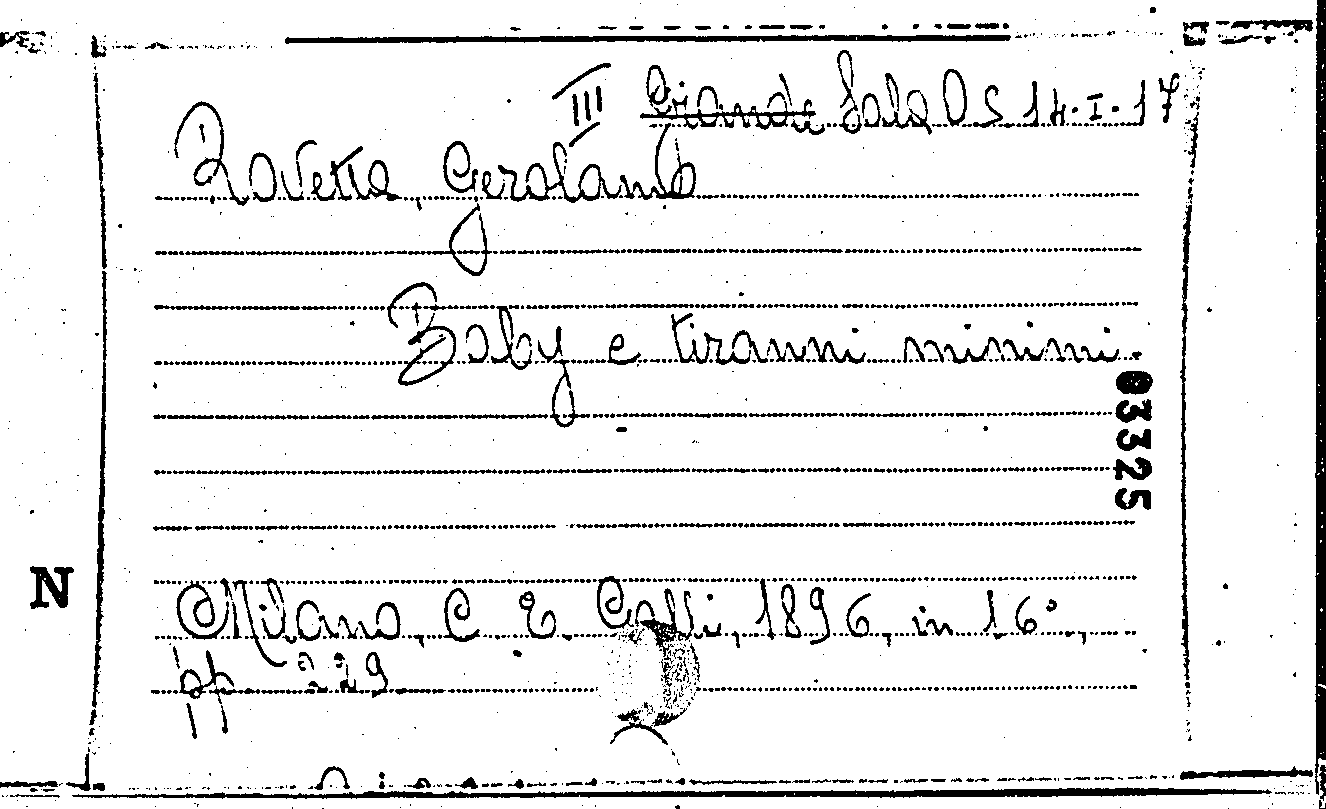 III Grande Sala O S 14·I·17
Rovetta, Gerolamo
Baby e tiranni minimi.
03325
N
Milano, C. E. Galli, 1896, in 16°,
pp. 229